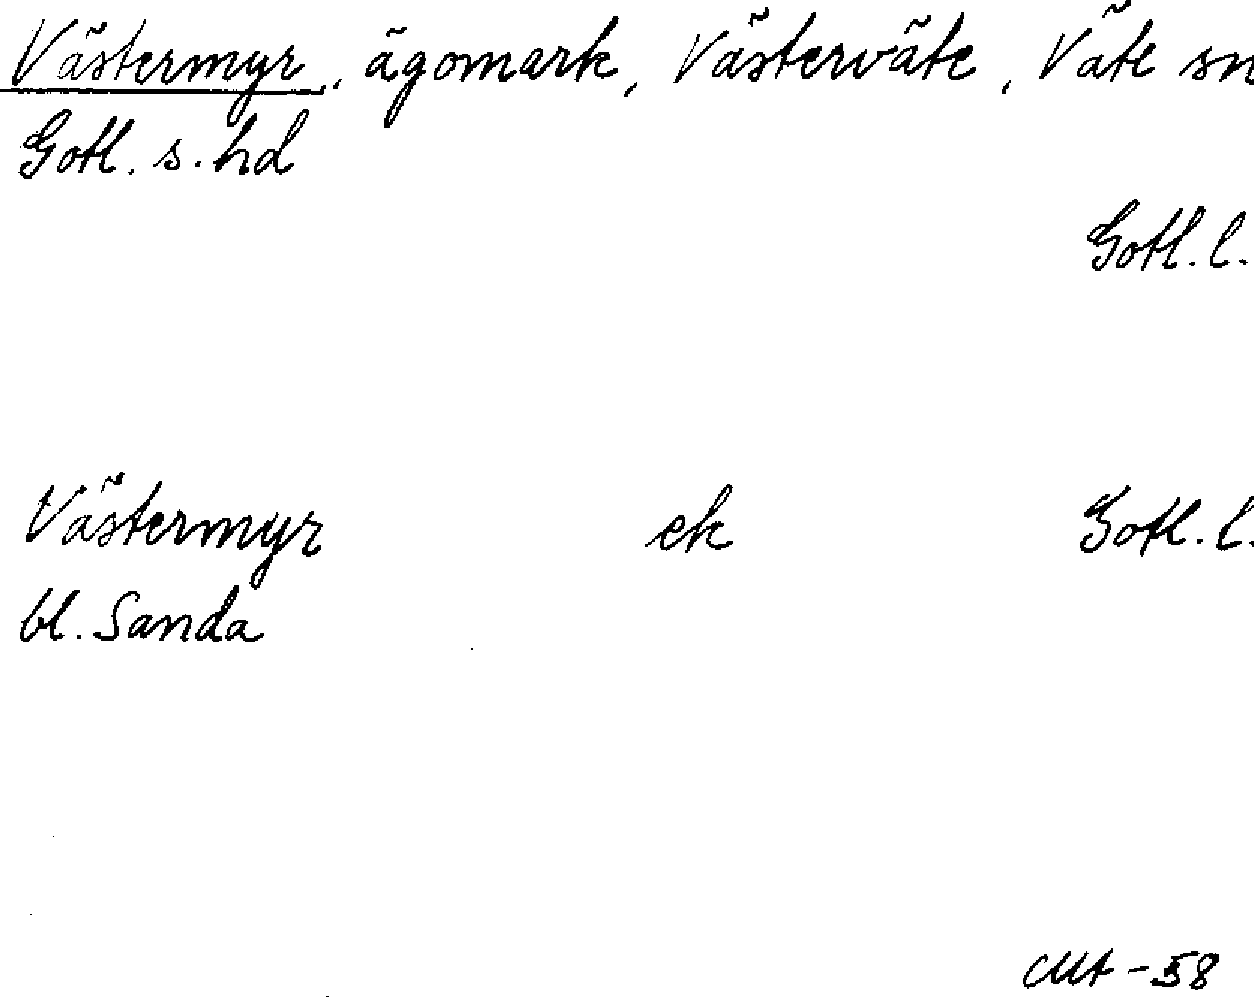 Västermyr, ägomark, Västerväte, Väte sn
Gotl. s. hd
Gotl. l.
Västermyr ek Gotl. l.
bl. Sanda
-58